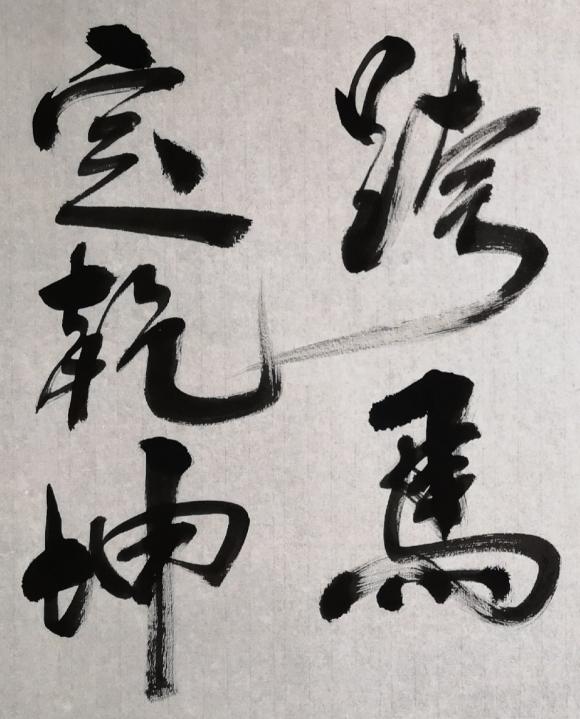 跨馬
定乾坤